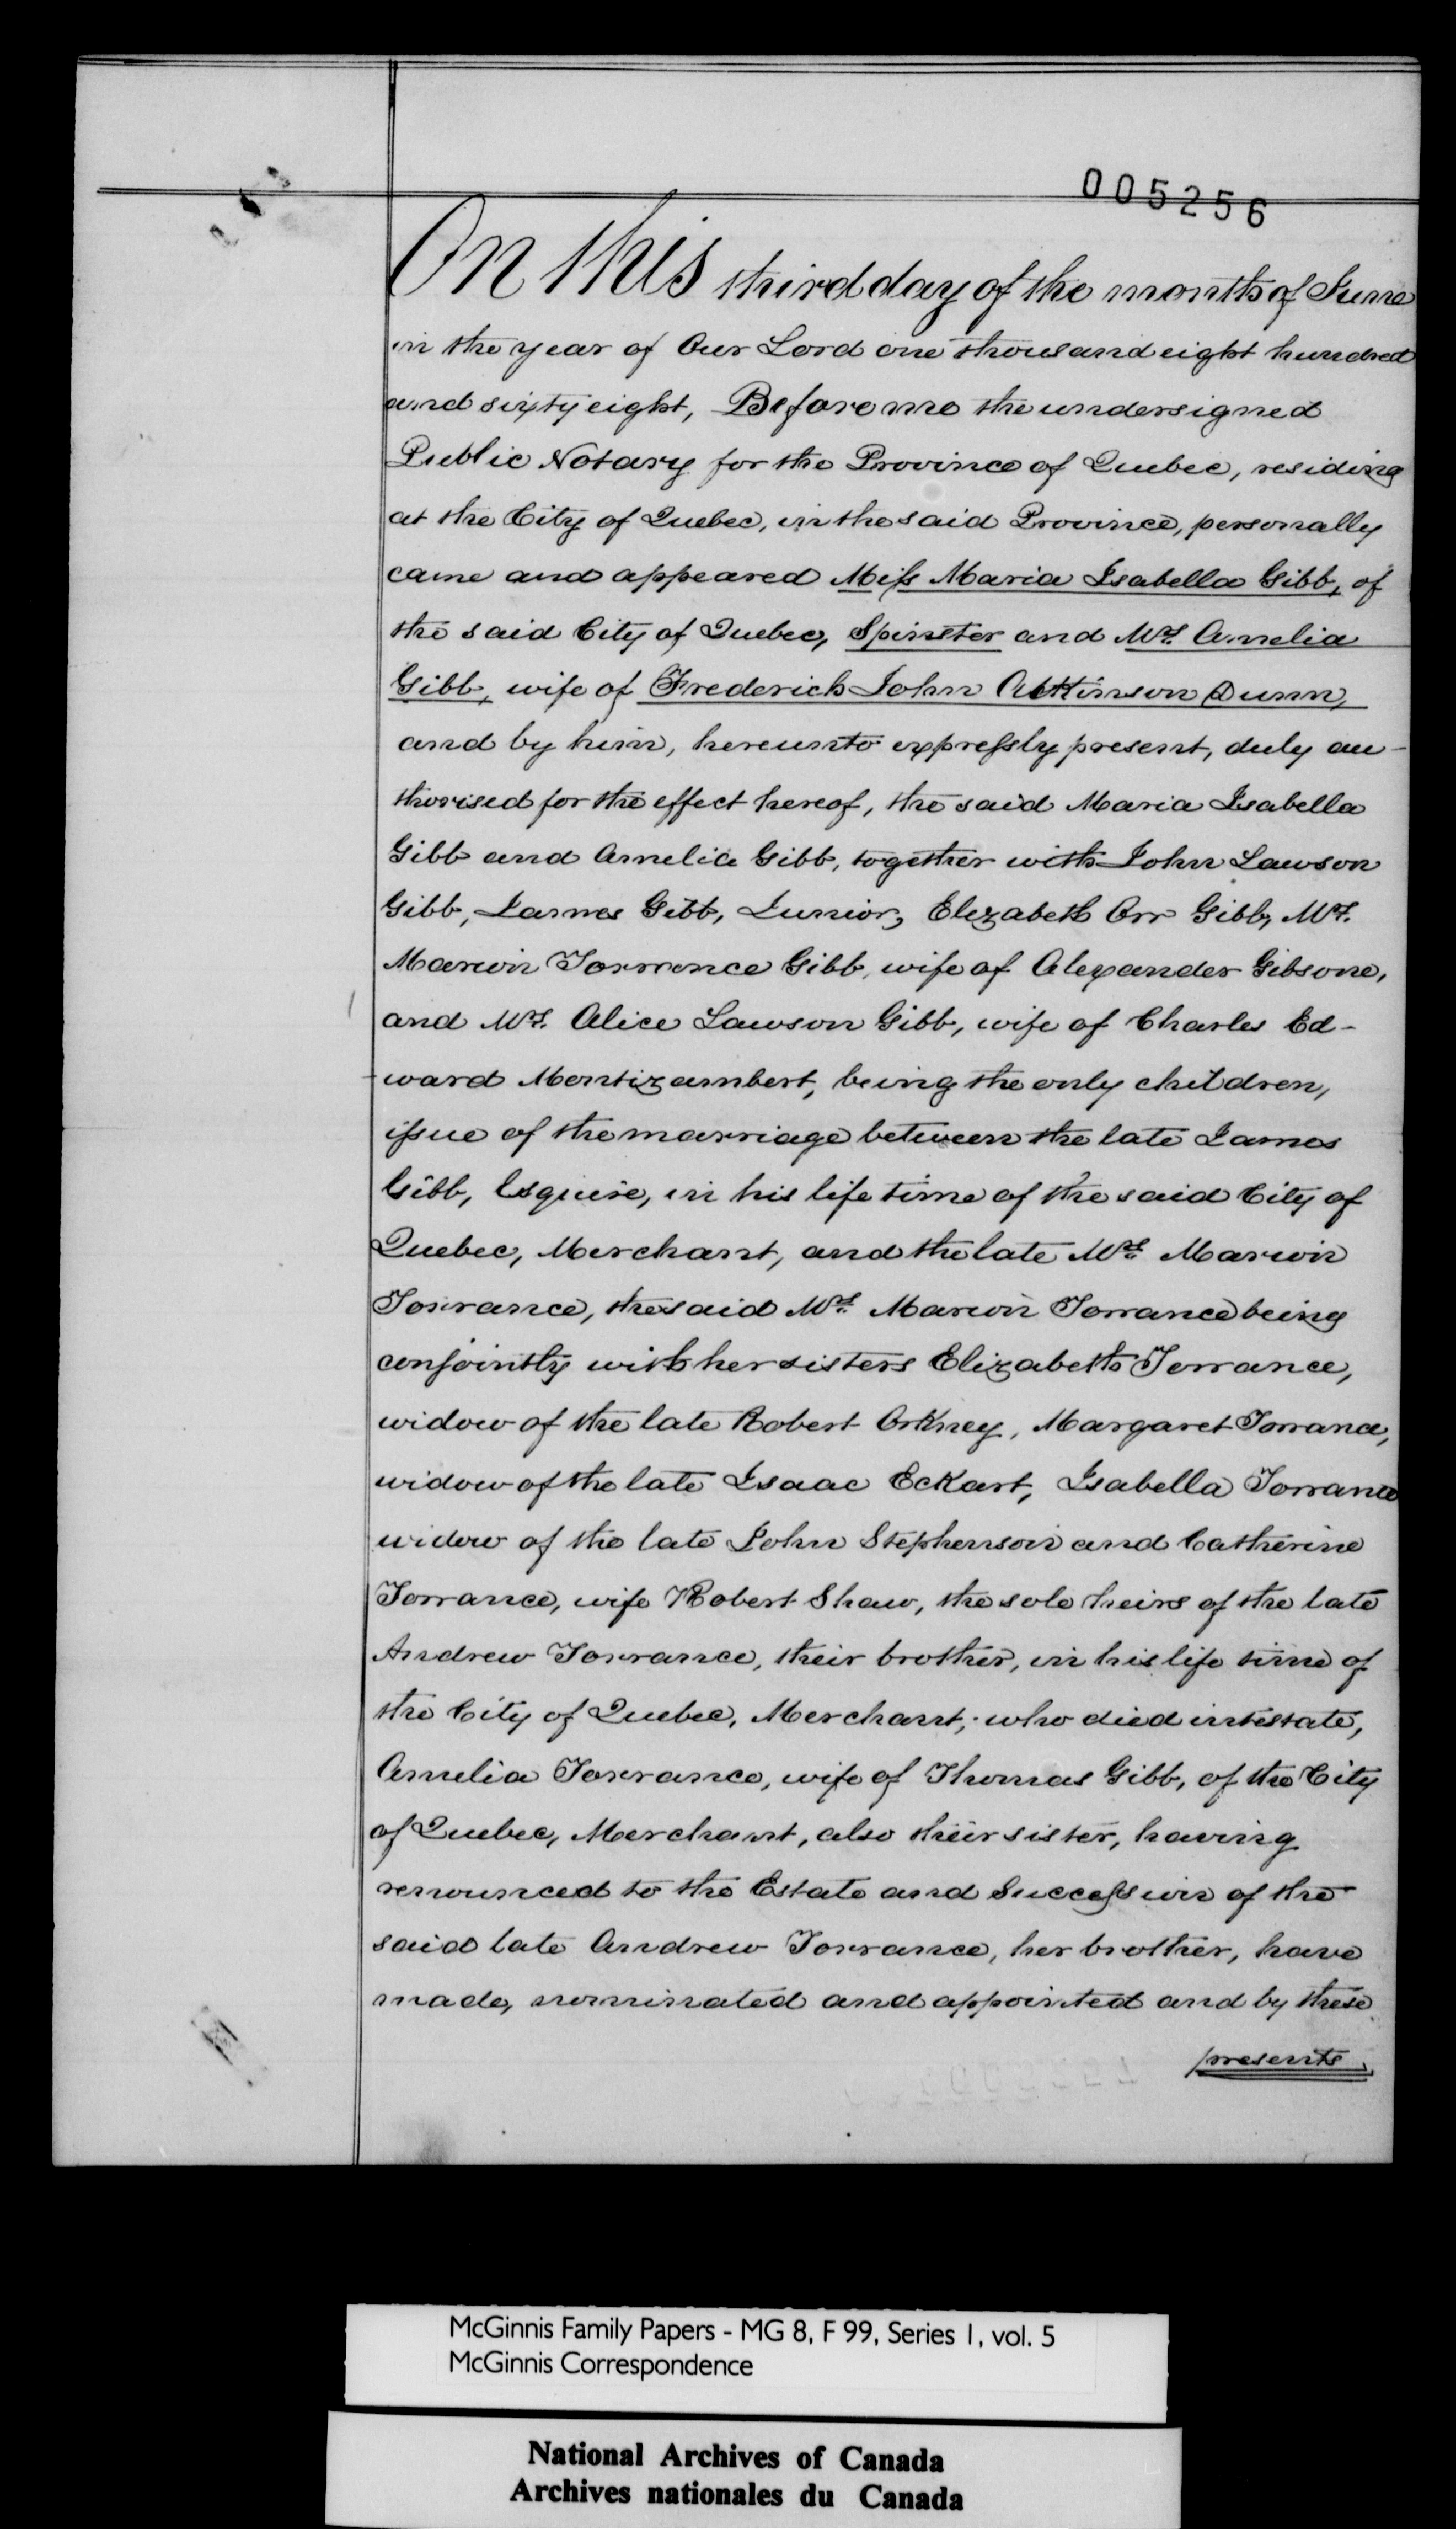 005256
On this third day of the month of June
in the year of Our Lord one thousand eight hundred
and sixty eight, Before me the undersigned
Public Notary for the Province of Quebec, residing
at the City of Quebec, in the said Province, personally
came and appeared Miss Maria Isabella Gibb, of
the said City of Quebec, Spinster and Mrs. Amelia
Gibb, wife of Frederick John Atkinson Dunn,
and by him, hereunto expressly present, duly au-
thorised for the effect hereof, the said Maria Isabella
Gibb and Amelia Gibb, together with John Lawson
Gibb, James Gibb, Junior, Elizabeth Orr Gibb, Mrs.
Marion Torrance Gibb, wife of Alexander Gibsone,
and Mrs. Alice Lawson Gibb, wife of Charles Ed-
ward Montizambert, being the only children,
issue of the marriage between the late James
Gibb, Esquire, in his life time of the said City of
Quebec, Merchant, and the late Mrs. Marion
Torrance, the said Mrs. Marion Torrance being
conjointly with her sisters Elizabeth Torrance,
widow of the late Robert Orkney, Margaret Torrance,
widow of the late Isaac Eckart, Isabella Torrance
widow of the late John Stephenson and Catherine
Torrance, wife Robert Shaw, the sole heirs of the late
Andrew Torrance, their brother, in his life time of
the City of Quebec, Merchant, who died intestate,
Amelia Torrance, wife of Thomas Gibb, of the City
of Quebec, Merchant, also their sister, having
renounced to the Estate and Succession of the
said late Andrew Torrance, her brother, have
made, nominated and appointed and by these
presents
McGinnis Family Papers - MG 8, F 99, Series 1, vol. 5
McGinnis Correspondence
National Archives of Canada
Archives nationales du Canada